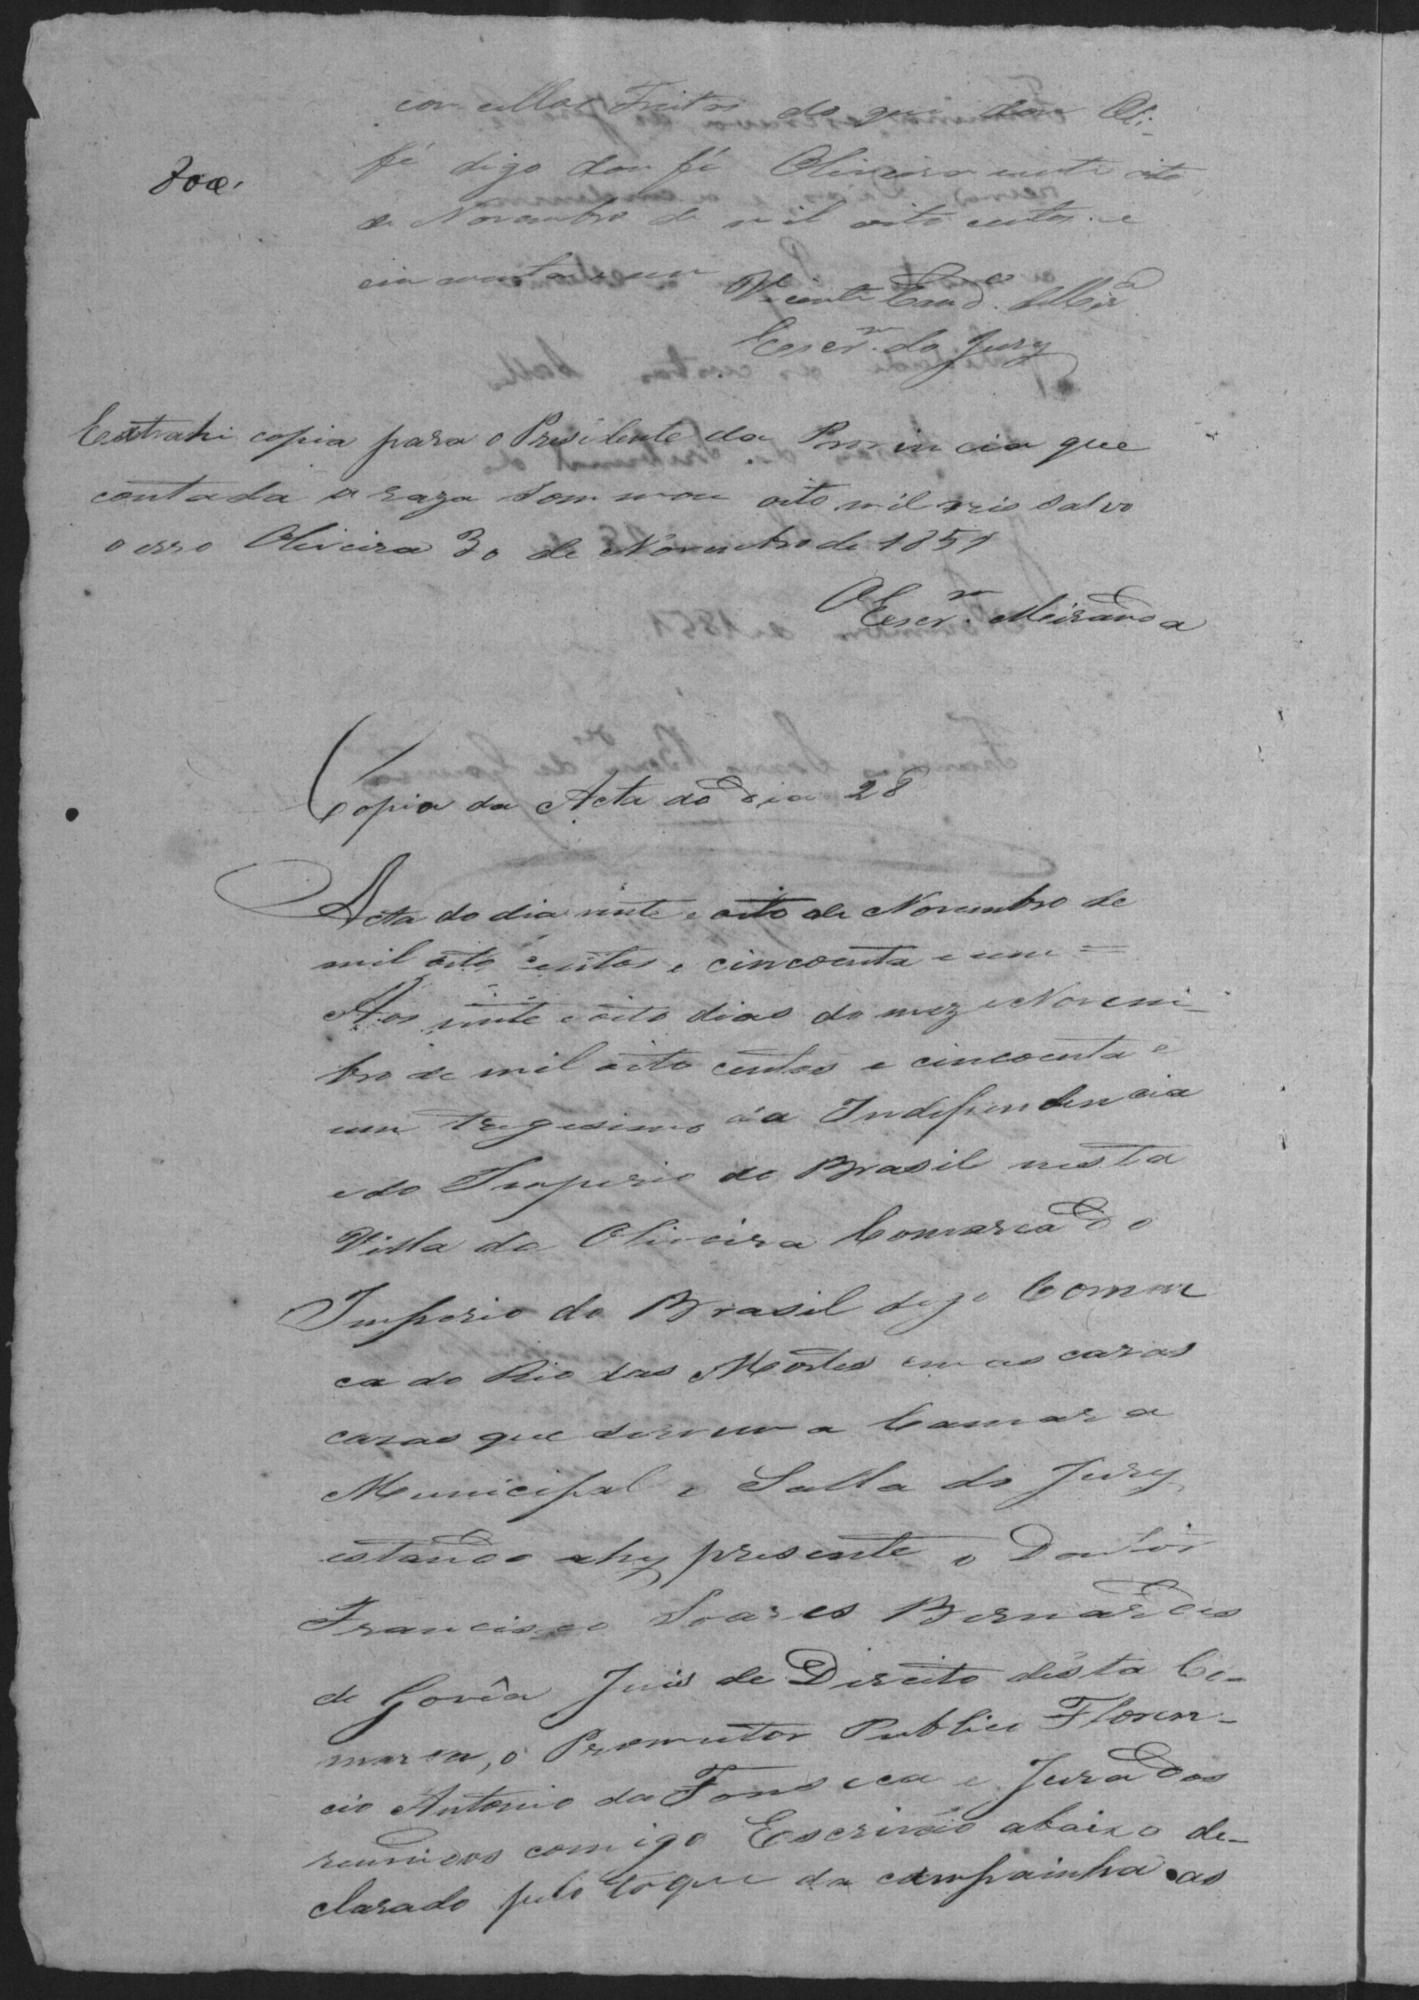 com ellas Freitas do que dou Oli-
fé digo dou fé Oliveira vinte oito
de Novembro de mil oito centos e
cincoenta e um
Vicente
Escr.m do Jury
Extrahi copia para o Presidente da Provincia que
contada a raza sommou oito mil reis salvo
o erro Oliveira 30 de Novembro de 1851
O Escr.m Meiranda
Copia da Acta do dia 28
Acta do dia vinte e oito de Novembro de
mil oito centos e cincoenta e um =
Aos vinte e oito dias do mez e Novem-
bro de mil oito centos e cincoenta e
um tregesimo da Independencia
e do Imperio do Brasil nesta
Villa da Oliveira Comarca do
Imperio do Brasil digo Comar
ca do Rio das Mortes em as cazas
cazas que servem a Camara
Municipal e Salla do Jury
estando ahy presente o Doutor
Francisco Soares Bernardes
de Govêa Juis de Direito désta Co-
marca, o Promutor Publico Floren-
cio Antonio da Fonseca e Jurados
reunidos comigo Escrivão abaixo de-
clarado pelo toque da campainha as